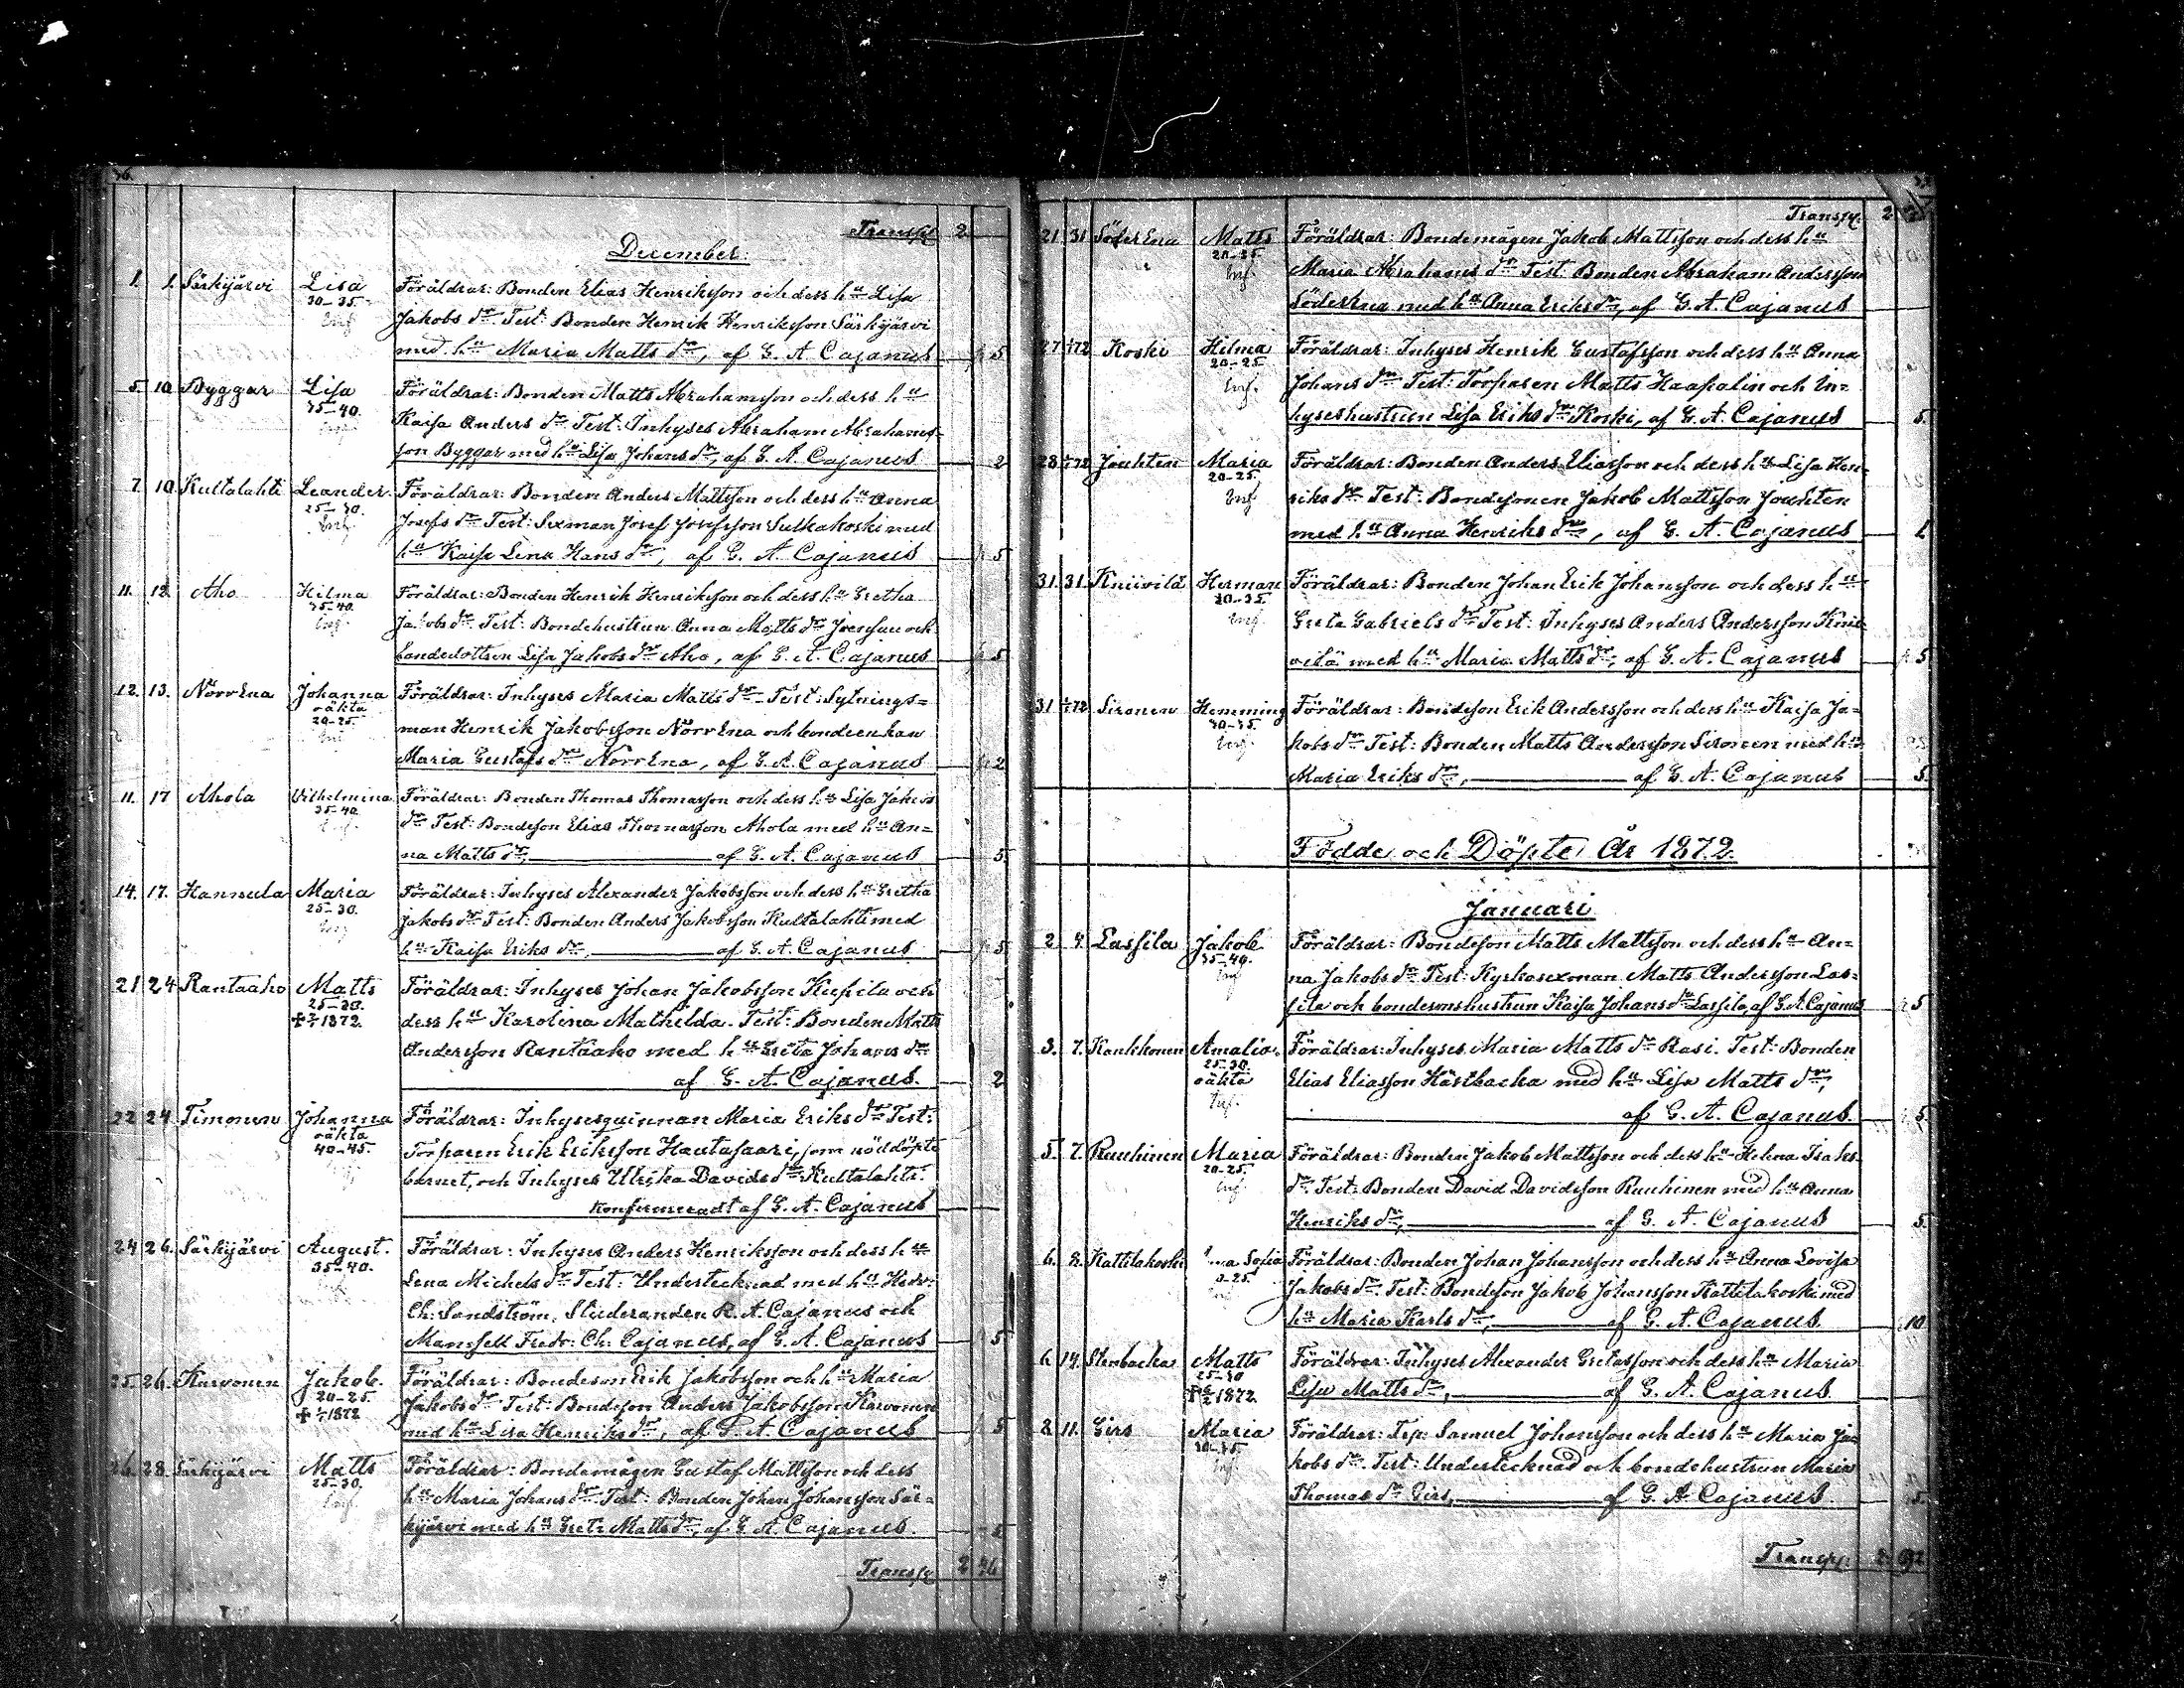 36.
Transp. 2
December.
1. 1. Särkijärvi Lisa Föräldrar: Bonden Elias Henriksson och dess h:u Lisa
30–35. Jakobs d:r Test: Bonden Henrik Henriksson Särkijärvi
med h:u Maria Matts d:r, af G. A. Cajanus 5
5. 10. Byggar Lisa Föräldrar: Bonden Matts Abrahamsson och dess h:u
35–40. Kaisa Anders d:r Test: Inhyses Abraham Abrahams-
son Byggar med h:u Lisa Johans d:r, af G. A. Cajanus 2
7. 10. Kultalahti Leander. Föräldrar: Bonden Anders Mattsson och dess h:u Anna
25–30. Josefs d:r Test: Sexman Josef Josefsson Sulkakoski med
h:u Kaisa Lena Hans d:r, af G. A. Cajanus 5
11. 12. Aho Hilma Föräldrar: Bonden Henrik Henriksson och dess h:u Gretha
35–40. Jakobs d:r Test: Bondehustrun Anna Matts d:r Joensuu och
bondedottren Lisa Jakobs d:r Aho, af G. A. Cajanus 5
12. 13. Norrena Johanna Föräldrar: Inhyses Maria Matts d:r Test: Sytnings=
oäkta
20–25. man Henrik Jakobsson Norrena och bondeenkan
Maria Gustafs d:r Norrena, af G. A. Cajanus 2
11. 17 Ahola Vilhelmina Föräldrar: Bonden Thomas Thomasson och dess h:u Lisa Jakobs
35–40. d:r Test: Bondeson Elias Thomasson Ahola med h:u An=
na Matts d:r, af G. A. Cajanus 5
14. 17. Hannula Maria Föräldrar: Inhyses Alexander Jakobsson och dess h:u Gretha
25–30. Jakobs d:r Test: Bonden Anders Jakobsson Kultalahti med
h:u Kaisa Eriks d:r, af G. A. Cajanus 5
21 24 Rantaaho Matts Föräldrar: Inhyses Johan Jakobsson Kupila och
25–30. dess h:u Karolina Mathilda. Test: Bonden Matts
1872. Andersson Rantaaho med h:u Greta Johans d:r
af G. A. Cajanus. 2
22 24 Timonen Johanna Föräldrar: Inhysesquinnan Maria Eriks d:r Test:
oäkta
40–45. Torparen Erik Eriksson Hautasaari, som nöddöpte
barnet, och Inhyses Ulrika Davids d:r Kultalahti.
Konfirmeradt af G. A. Cajanus
24 26. Särkijärvi August. Föräldrar: Inhyses Anders Henriksson och dess h:u
35–40. Lena Michels d:r Test: Undertecknad med h:u Hedv:
Ch: Sandström, Studeranden R. A. Cajanus och
Mamsell Fredr: Ch: Cajanus, af G. A. Cajanus 5
25. 26. Karvonen Jakob. Föräldrar: Bondeson Erik Jakobsson och h:u Maria
20–25. Jakobs d:r Test: Bondeson Anders Jakobsson Karvonen
1872 med h:u Lisa Henriks d:r, af G. A. Cajanus 5
26. 28 Särkijärvi Matts Föräldrar: Bondemågen Gustaf Mattsson och dess
25–30. h:u Maria Johans d:r Test: Bonden Johan Johansson Sär=
kijärvi med h:u Greta Matts d:r, af G. A. Cajanus.
Transp. 2
Transp. 2
21 31 Söderena Matts Föräldrar: Bondemågen Jakob Mattsson och dess h:u
Maria Abrahams d:r Test: Bonden Abraham Andersson
Söderena med h:u Anna Eriks d:r, af G. A. Cajanus
27 Koski Hilma Föräldrar: Inhyses Henrik Gustafsson och dess h:u Anna
20–25. Johans d:r Test: Torparen Matts Haapalin och In=
hyseshustrun Lisa Eriks d:r Koski, af G. A. Cajanus 5.
28 Jouhten Maria Föräldrar: Bonden Anders Eliasson och dess h:u Lisa Hen-
20–25. riks d:r Test: Bondesonen Jakob Mattsson Jouhten
med h:u Anna Henriks d:r, af G. A. Cajanus
31. 31. Kniivilä Herman Föräldrar: Bonden Johan Erik Johansson och dess h:u
30–35. Greta Gabriels d:r Test: Inhyses Anders Andersson Knii-
vilä med h:u Maria Matts d:r, af G. A. Cajanus 5
31 Sironen Hemming Föräldrar: Bondeson Erik Andersson och dess h:u Kaisa Ja=
30–35. kobs d:r Test: Bonden Matts Andersson Sironen med h:u
Maria Eriks d:r, af G. A. Cajanus 5.
Födde och Döpte År 1872.
Januari
2 4 Lassila Jakob Föräldrar: Bondeson Matts Mattsson och dess h:u An=
35–40. na Jakobs d:r Test: Kyrkosexman Matts Andersson Las-
sila och bondesonshustrun Kaisa Johans d:r Lassila, af G. A. Cajanus 5
3. 7. Kaukkonen Amalia. Föräldrar: Inhyses Maria Matts d:r Rasi. Test: Bonden
25–30.
oäkta Elias Eliasson Härtbacka med h:u Lisa Matts d:r,
af G. A. Cajanus. 5
5. 7. Ruuhinen Maria Föräldrar: Bonden Jakob Mattsson och dess h:u Helena Isaks
20–25. d:r Test: Bonden David Davidsson Ruuhinen med h:u Anna
Henriks d:r, af G. A. Cajanus 5.
6. 8. Kattilakoski Sofia Föräldrar: Bonden Johan Johansson och dess h:u Anna Lovisa
Jakobs d:r Test: Bondeson Jakob Johansson Kattilakoski med
h:u Maria Karls d:r, af G. A. Cajanus. 10
6 14 Stenbacka Matts Föräldrar: Inhyses Alexander Gretasson och dess h:u Maria
25–30
1872. Lisa Matts d:r, af G. A. Cajanus.
8 11. Girs Maria Föräldrar: Torp: Samuel Johansson och dess h:u Maria Ja-
30–35. kobs d:r Test: Undertecknad och bondehustrun Maria
Thomas d:r Girs, af G. A. Cajanus 5.
Transp. 2 92